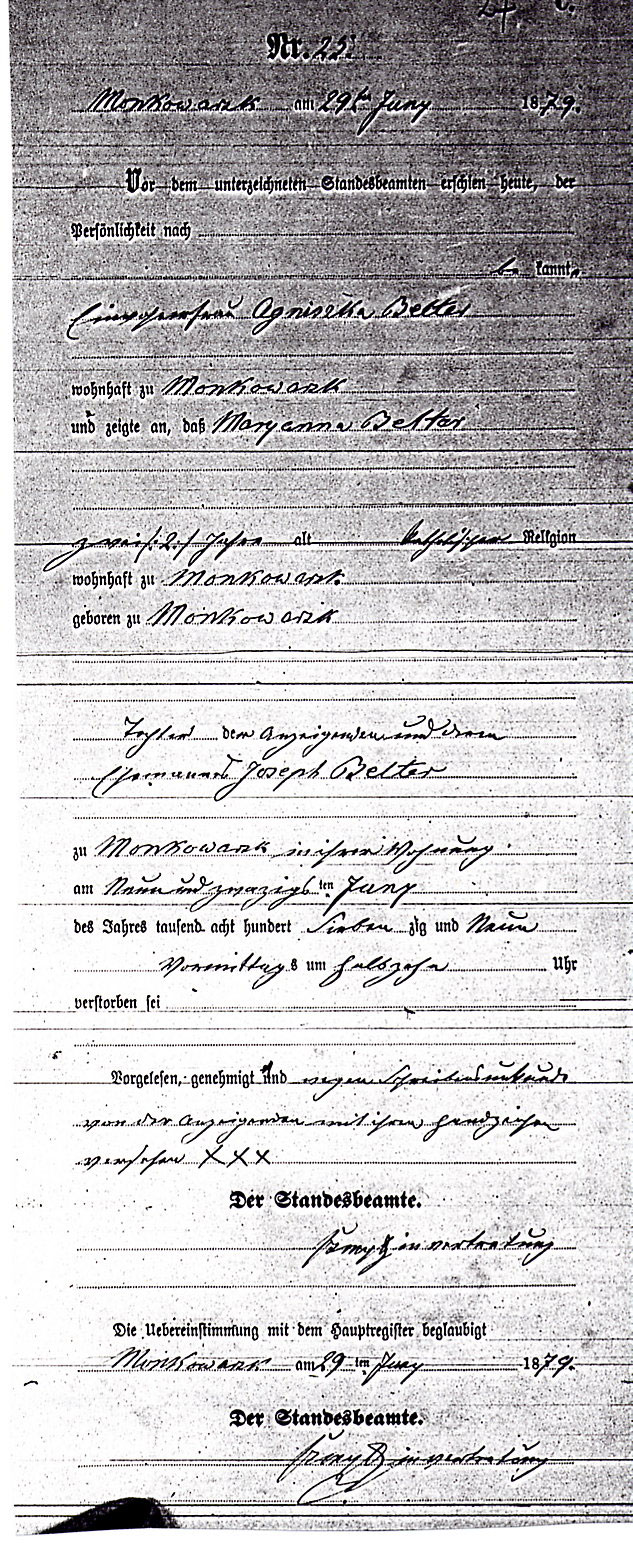 Nr. 25.
Monkowarsk am 29ten Juny 1879.
Vor dem unterzeichneten Standesbeamten erschien heute, der
Persönlichkeit nach
be kannt,
Einwohnerfrau Agnisека Belter
wohnhaft zu Monkowarsk
und zeigte an, daß Maryanna Belter
zwei /:2:/ Jahre alt katholischer Religion
wohnhaft zu Monkowarsk
geboren zu Monkowarsk
Tochter der Anzeigenden und deren
Ehemannes Joseph Belter
zu Monkowarsk in ihrer Wohnung
am Neun und zwazigsten Juny
des Jahres tausend acht hundert Sieben zig und Neun
Vormittags um halbzehn Uhr
verstorben sei
Vorgelesen, genehmigt und wegen Schreibensunkunde
von der Anzeigenden mit ihrem Handzeichen
versehen XXX
Der Standesbeamte.
in vertretung
Die Uebereinstimmung mit dem Hauptregister beglaubigt
Monkowarsk am 29ten Juny 1879.
Der Standesbeamte.
in vertretung